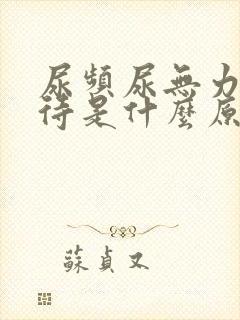 尿頻尿無力
待是什麼原
蘇貞又